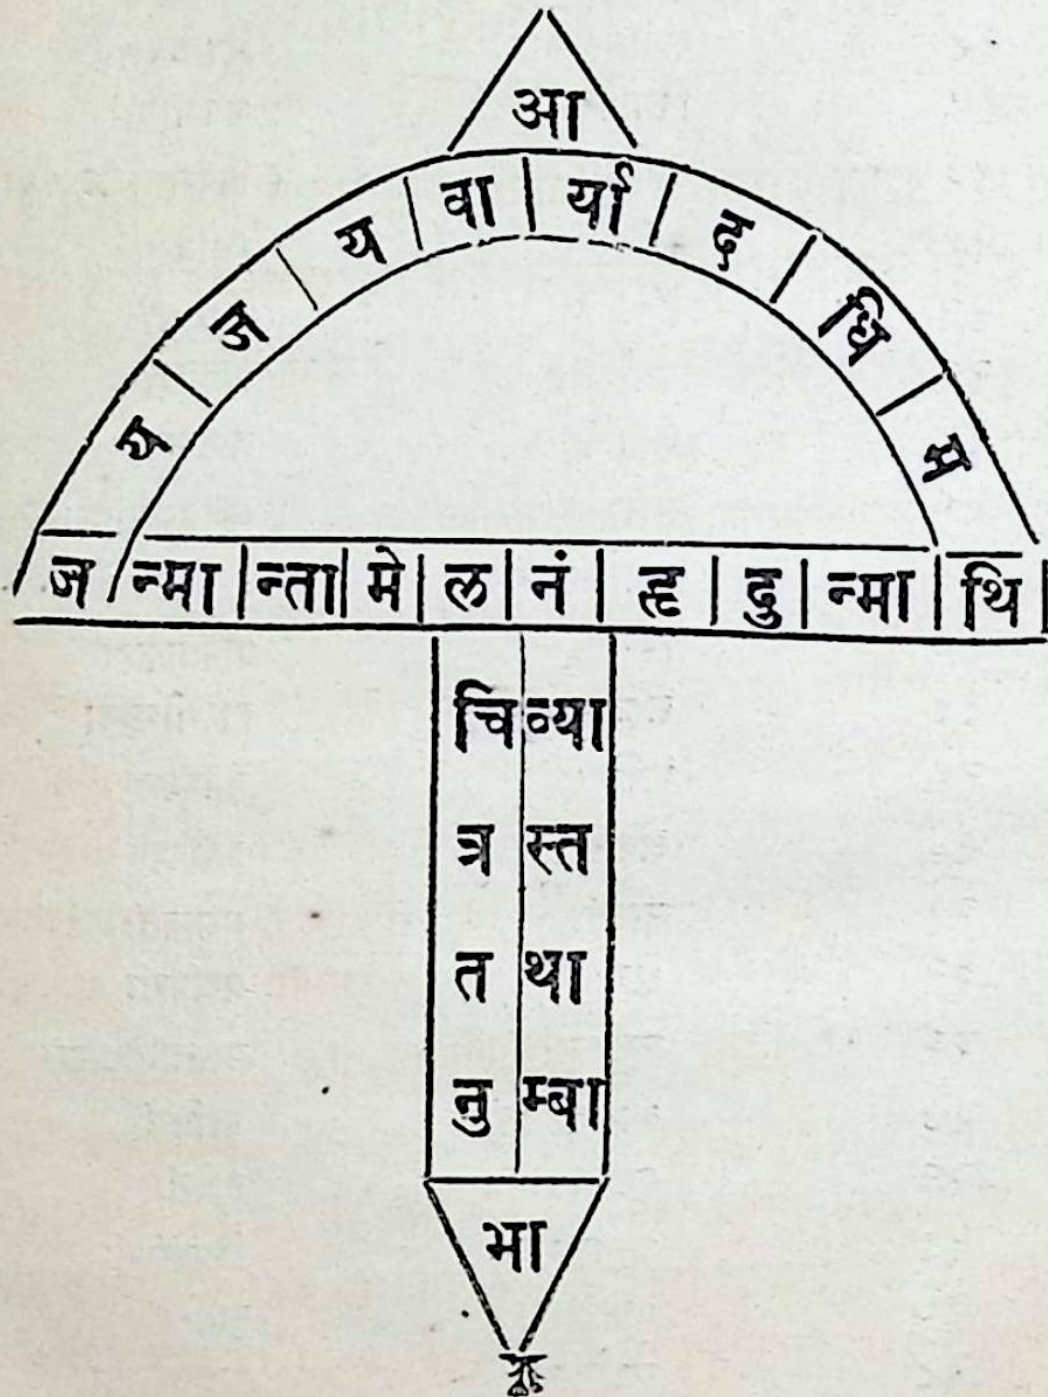 आ
य ज य वा र्या द धि म
ज न्मा न्ता मे ल नं हृ दु न्मा थि
चि व्या
त्र स्त
त था
नु म्बा
भा